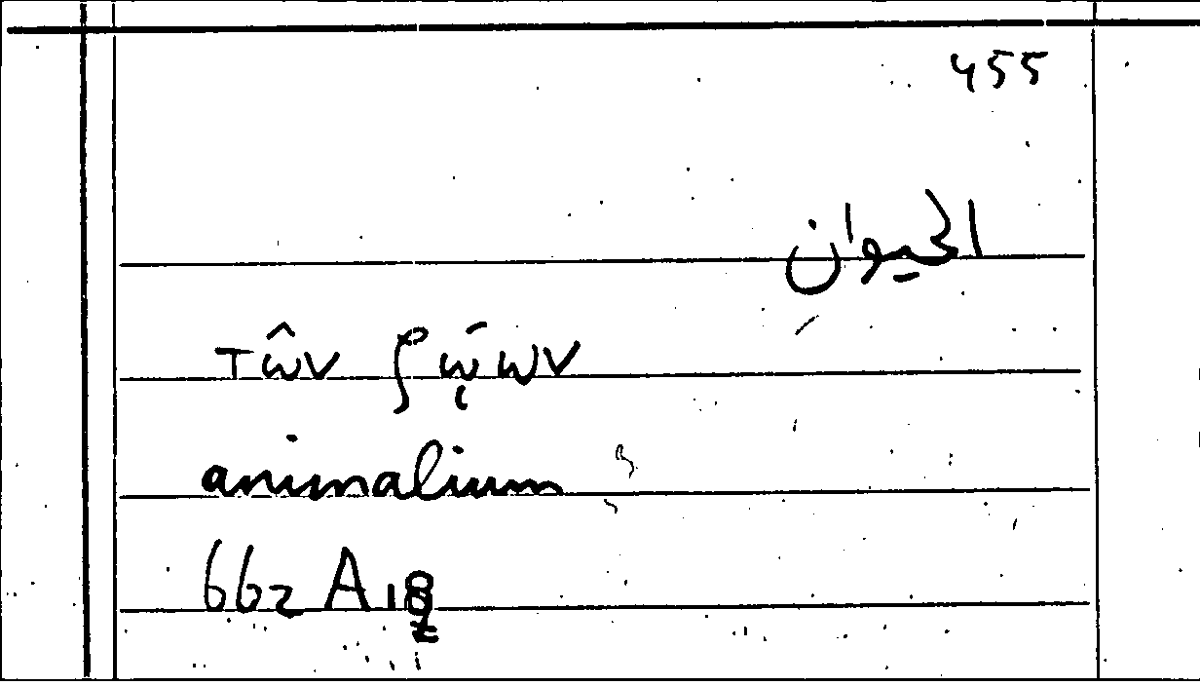 455
الحيوان
τῶν ζῴων
animalium
662 A 18